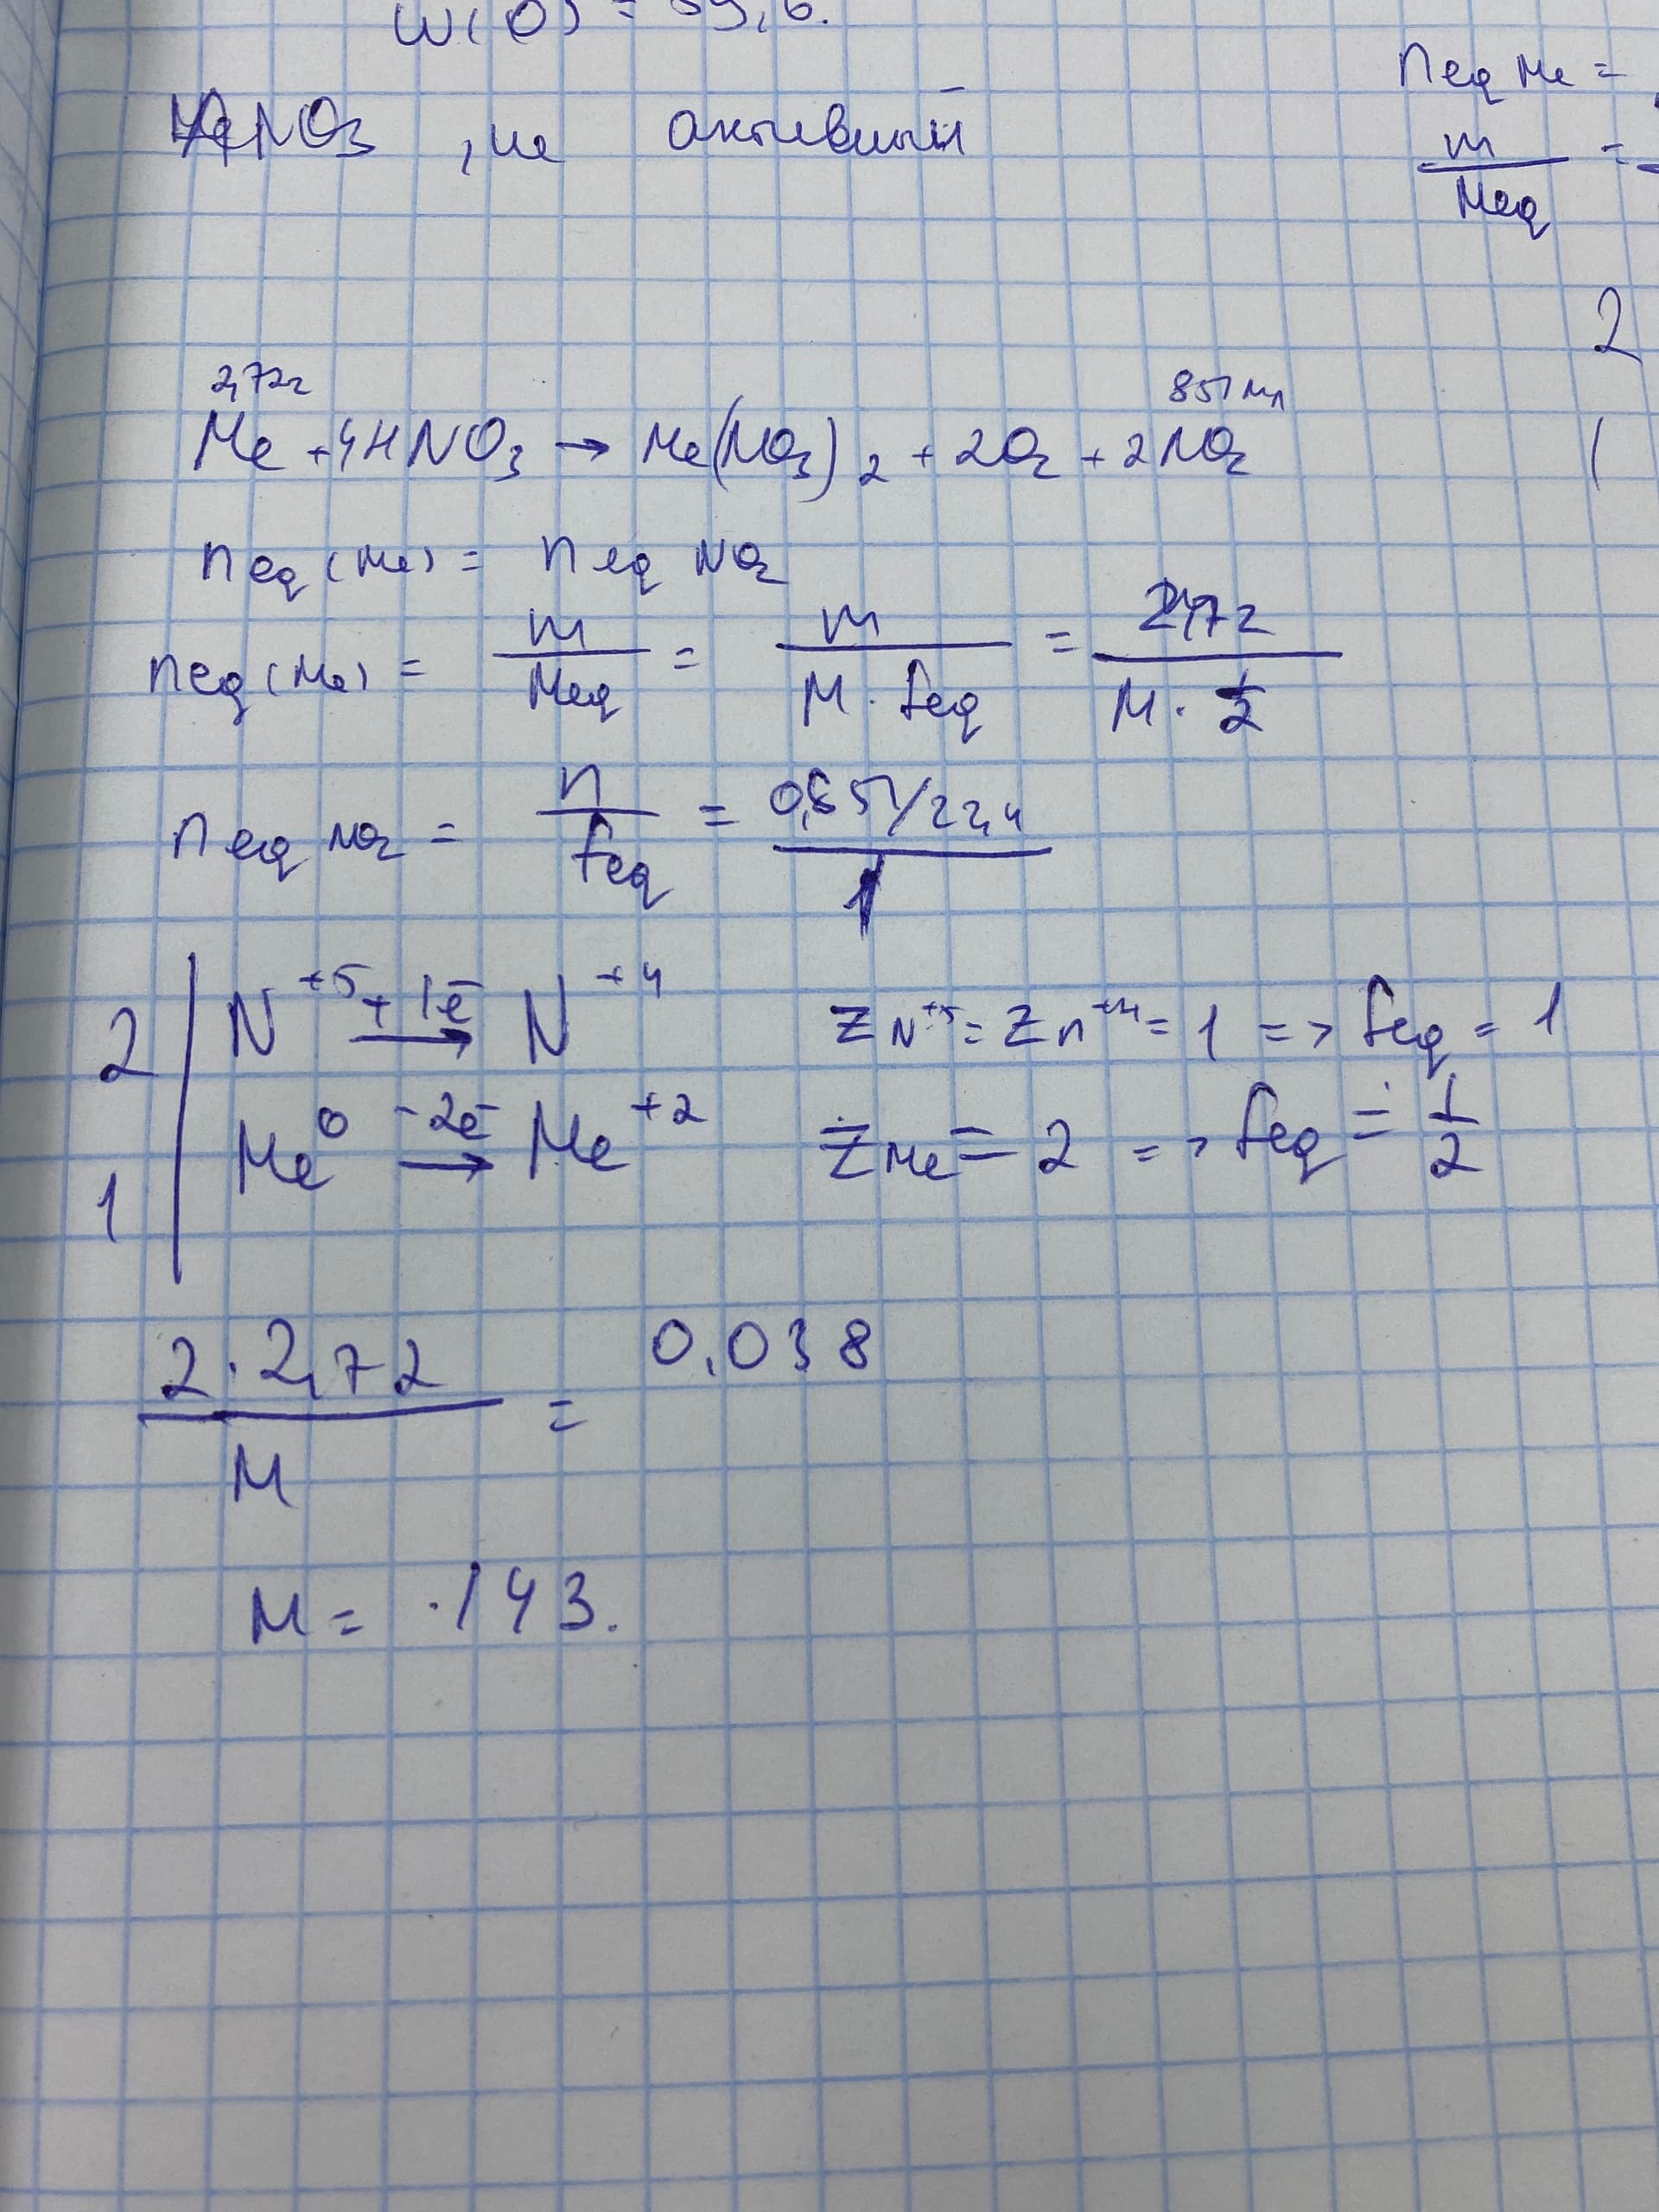 W(O) = 59,6.
n eq Me =
MeNO3 , не активный
m / Meq =
2
2,72г
851 мл
Me + 4HNO3 → Me(NO3)2 + 2O2 + 2NO2
(
n eq (Me) = n eq NO2
n eq (Me) = m / Meq = m / M · feq = 2,72 / M · 1/2
n eq NO2 = n / feq = 0,851/22,4 / 1
2 | N+5 +1e-→ N+4 ZN+5 = Zn+4 = 1 => feq = 1
1 | Me0 -2e-→ Me+2 ZMe = 2 => feq = 1/2
2 · 2,72 / M = 0.038
M = 143.